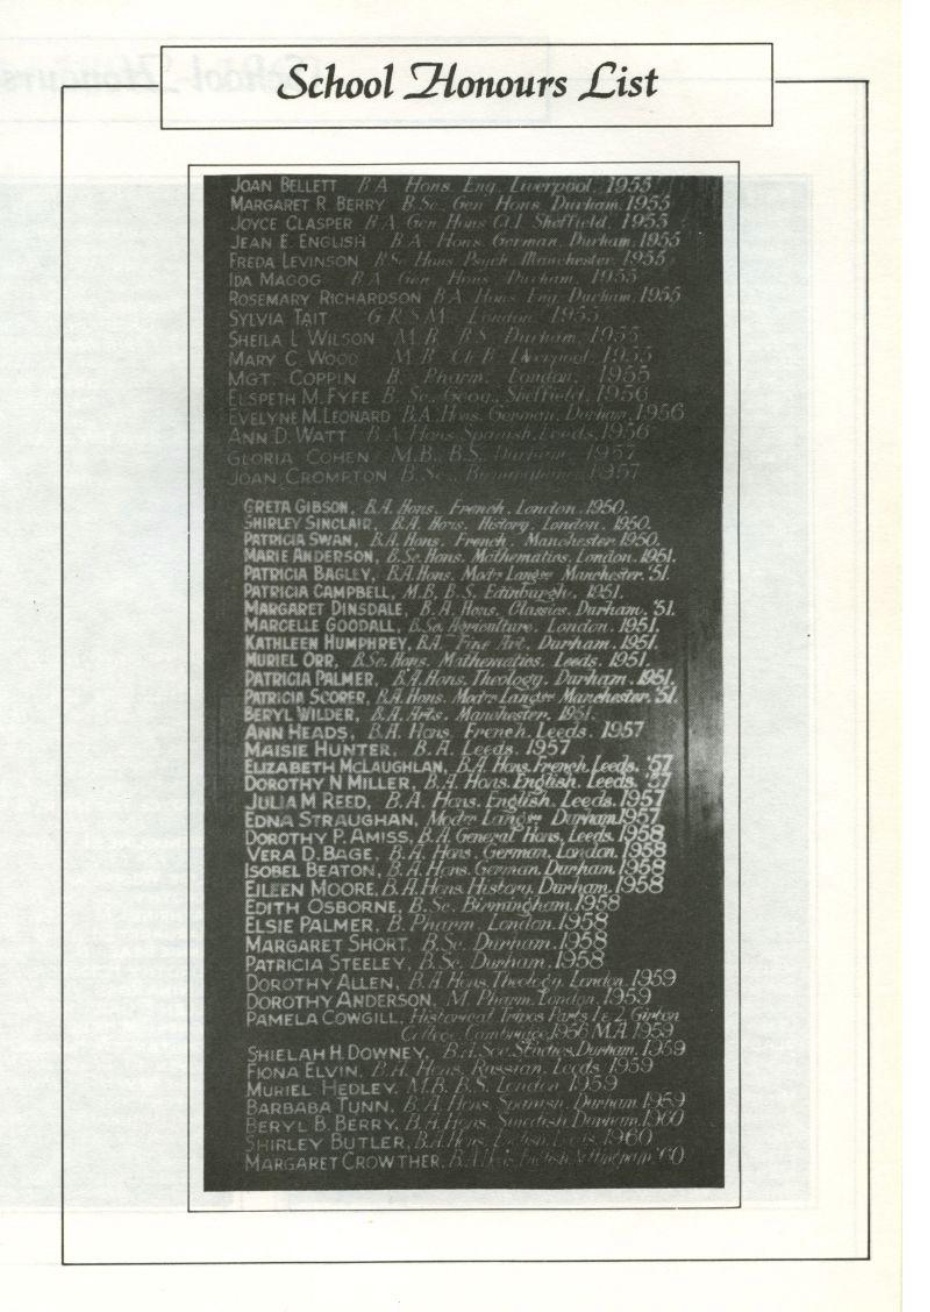 School Honours List
JOAN BELLETT B.A. Hons. Eng. Liverpool, 1955
MARGARET R. BERRY B.Sc. Gen Hons. Durham. 1955
JOYCE CLASPER B.A. Gen. Hons Cl.I. Sheffield. 1955
JEAN E. ENGLISH B.A. Hons. German, Durham, 1955
FREDA LEVINSON B.Sc. Hons. Psych. Manchester. 1955
IDA MAGOG B.A. Gen. Hons. Durham, 1955
ROSEMARY RICHARDSON B.A. Hons. Eng. Durham, 1955
SYLVIA TAIT G.R.S.M. London. 1955
SHEILA L WILSON M.B. B.S. Durham, 1955
MARY C. WOOD M.B. Ch.B. Liverpool. 1955
MGT. COPPIN B. Pharm. London, 1955
ELSPETH M. FYFE B. Sc. Geog. Sheffield. 1956
EVELYNE M. LEONARD B.A. Hons. German. Durham, 1956
ANN D. WATT B.A. Hons. Spanish. Leeds, 1956
GLORIA COHEN M.B., B.S. Durham, 1957
JOAN CROMPTON B.Sc. Birmingham. 1957
GRETA GIBSON, B.A. Hons. French. London. 1950.
SHIRLEY SINCLAIR, B.A. Hons. History. London. 1950.
PATRICIA SWAN, B.A. Hons. French. Manchester 1950.
MARIE ANDERSON, B.Sc. Hons. Mathematics. London. 1951.
PATRICIA BAGLEY, B.A. Hons. Modrn Langes Manchester. '51.
PATRICIA CAMPBELL, M.B, B.S. Edinburgh. 1951.
MARGARET DINSDALE, B.A. Hons. Classics. Durham. '51.
MARCELLE GOODALL, B.Sc. Agriculture. London. 1951.
KATHLEEN HUMPHREY, B.A. Fine Art. Durham. 1951.
MURIEL ORR, B.Sc. Hons. Mathematics. Leeds. 1951.
PATRICIA PALMER, B.A. Hons. Theology. Durham. 1951.
PATRICIA SCORER, B.A. Hons. Modrn Langes Manchester. '51.
BERYL WILDER, B.A. Arts. Manchester. 1951.
ANN HEADS, B.A. Hons. French. Leeds. 1957
MAISIE HUNTER, B.A. Leeds. 1957
ELIZABETH MCLAUGHLAN, B.A. Hons. French. Leeds. '57
DOROTHY N MILLER, B.A. Hons. English. Leeds. '57
JULIA M REED, B.A. Hons. English. Leeds. 1957
EDNA STRAUGHAN, Modrn Langes Durham. 1957
DOROTHY P. AMISS, B.A. General Hons, Leeds. 1958
VERA D. BAGE, B.A. Hons. German. London. 1958
ISOBEL BEATON, B.A. Hons. German. Durham. 1958
EILEEN MOORE, B.A. Hons. History. Durham. 1958
EDITH OSBORNE, B.Sc. Birmingham. 1958
ELSIE PALMER, B. Pharm. London. 1958
MARGARET SHORT, B.Sc. Durham. 1958
PATRICIA STEELEY, B.Sc. Durham. 1958
DOROTHY ALLEN, B.A. Hons. Theology. London. 1959
DOROTHY ANDERSON, M. Pharm. London. 1959
PAMELA COWGILL, Historical Tripos Parts 1 & 2 Girton
College Cambridge 1956 M.A. 1959
SHIELAH H. DOWNEY, B.A. Soc. Studies. Durham. 1959
FIONA ELVIN. B.A. Hons. Russian. Leeds 1959
MURIEL HEDLEY. M.B. B.S. London 1959
BARBABA TUNN, B.A. Hons. Spanish. Durham. 1959
BERYL B. BERRY, B.A. Hons. Swedish. Durham. 1960
SHIRLEY BUTLER, B.A. Hons. Leeds. 1960
MARGARET CROWTHER, B.A. Hons. English. Nottingham. '60